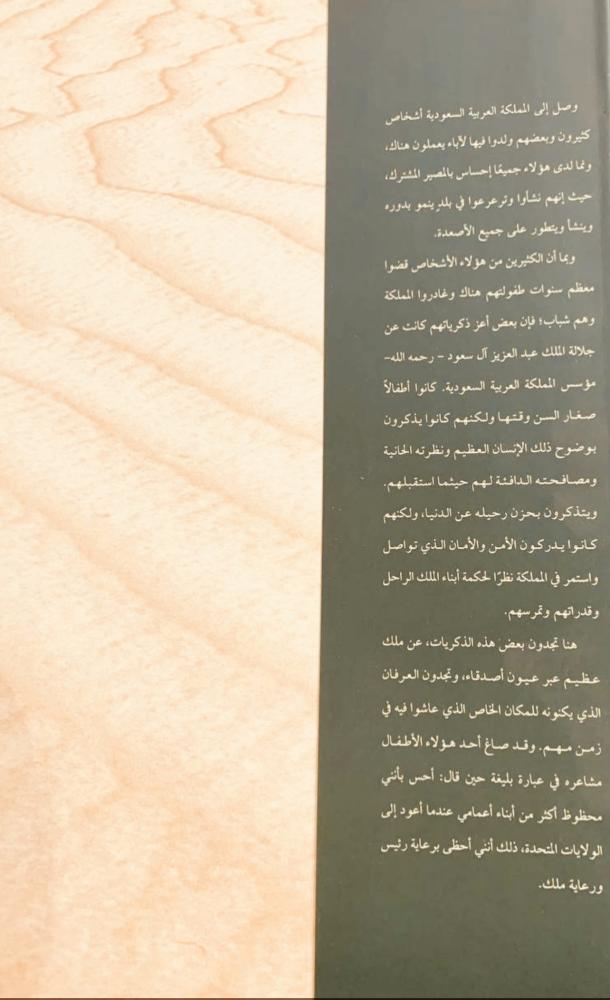 وصل إلى المملكة العربية السعودية أشخاص
كثيرون وبعضهم ولدوا فيها لآباء يعملون هناك،
ونما لدى هؤلاء جميعًا إحساس بالمصير المشترك،
حيث إنهم نشأوا وترعرعوا في بلد ينمو بدوره
وينشأ ويتطور على جميع الأصعدة.
وبما أن الكثيرين من هؤلاء الأشخاص قضوا
معظم سنوات طفولتهم هناك وغادروا المملكة
وهم شباب؛ فإن بعض أعز ذكرياتهم كانت عن
جلالة الملك عبد العزيز آل سعود - رحمه الله-
مؤسس المملكة العربية السعودية. كانوا أطفالاً
صغار السن وقتها ولكنهم كانوا يذكرون
بوضوح ذلك الإنسان العظيم ونظرته الحانية
ومصافحته الدافئة لهم حيثما استقبلهم.
ويتذكرون بحزن رحيله عن الدنيا، ولكنهم
كانوا يدركون الأمن والأمان الذي تواصل
واستمر في المملكة نظرًا لحكمة أبناء الملك الراحل
وقدراتهم وتمرسهم.
هنا تجدون بعض هذه الذكريات، عن ملك
عظيم عبر عيون أصدقاء، وتجدون العرفان
الذي يكنونه للمكان الخاص الذي عاشوا فيه في
زمن مهم. وقد صاغ أحد هؤلاء الأطفال
مشاعره في عبارة بليغة حين قال: أحس بأنني
محظوظ أكثر من أبناء أعمامي عندما أعود إلى
الولايات المتحدة، ذلك أنني أحظى برعاية رئيس
ورعاية ملك.